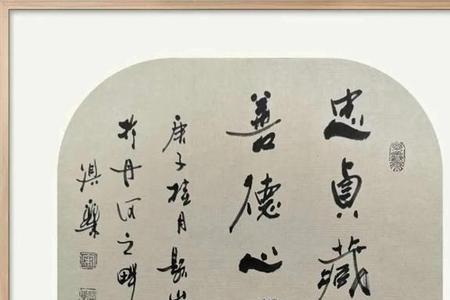 忠貞藏
善德心
庚子桂月
於丹河之畔